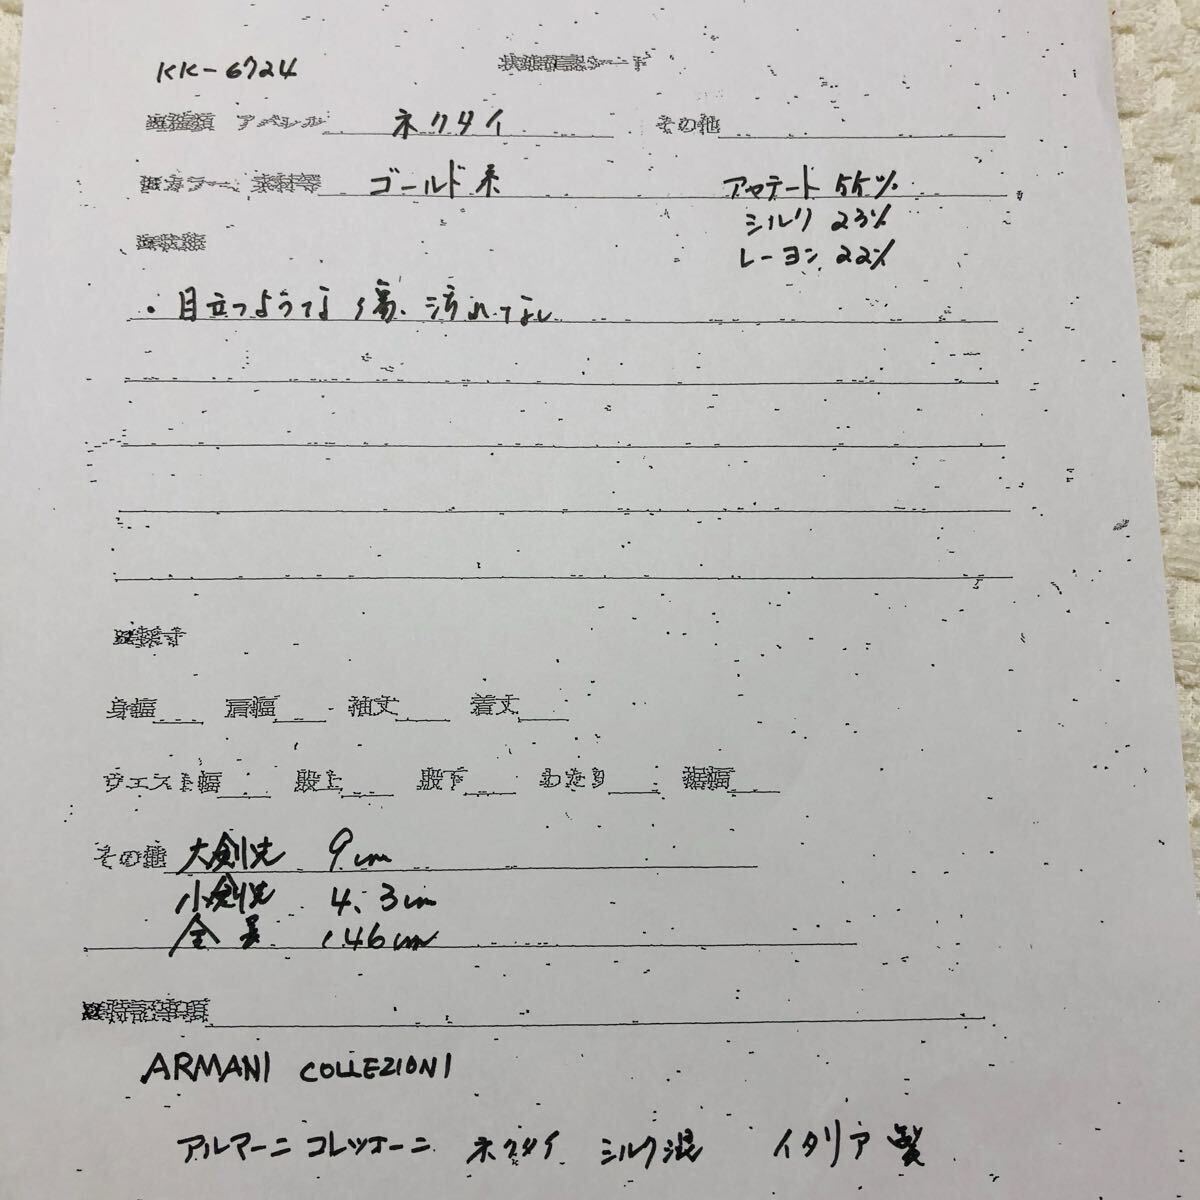 KK-6724
状態確認シート
■種類 アパレル ネクタイ その他
■カラー、素材等 ゴールド系 アセテート 55%
シルク 23%
レーヨン 22%
■状態
・目立つような傷、汚れなし
■採寸
身幅 肩幅 袖丈 着丈
ウエスト幅 股上 股下 わたり 裾幅
その他 大剣先 9cm
小剣先 4.3cm
全長 146cm
■特記事項
ARMANI COLLEZIONI
アルマーニ コレツオーニ ネクタイ シルク混 イタリア製